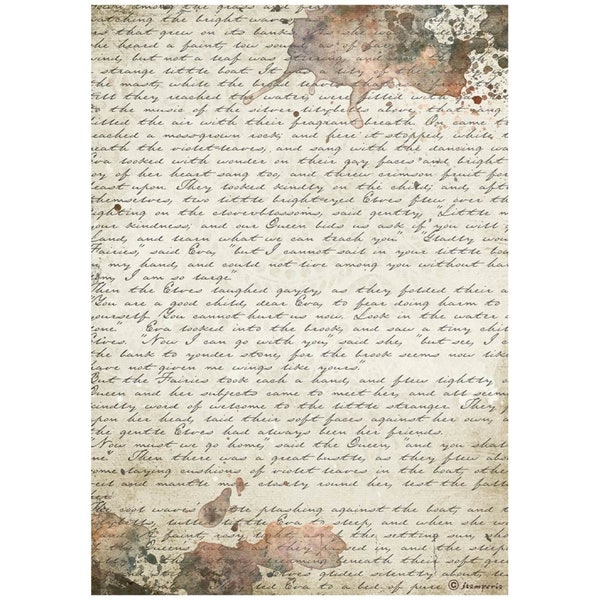 atching the bright waves
s that grew on its ban
he heard a faint, low soun
bird, but not a leaf was stirring
strange little boat. It
the mast, while the
till they reached the water, were filled with
to the music of the silver lilybells
filled the air with their fragrant breath. On came t
eached a mossgrown rock; and here it stopped, while t
eath the violet-leaves, and sang with the dancing wa
Eva looked with wonder on their gay faces and bright
oy of her heart sang too, and threw crimson fruit for
east upon. They looked kindly on the child, and, aft
hemselves, two little bright-eyed Elves flew over th
lighting on the cloverblossoms, said gently, "Little m
our kindness; and our Queen bids us ask if you will g
Land, and learn what we can teach you." "Gladly wou
Fairies," said Eva, "but I cannot sail in your little bo
n my hand, and could not live among you without har
m, I am so large."
Then the Elves laughed gayly, as they folded their a
"You are a good child, dear Eva, to fear doing harm to
ourself. You cannot hurt us now. Look in the water
one." Eva looked into the brook, and saw a tiny chil
Elves. "Now I can go with you," said she, "but see, I c
the bank to yonder stone, for the brook seems now like
have not given me wings like yours."
But the Fairies took each a hand, and flew lightly o
Queen and her subjects came to meet her, and all seem
kindly word of welcome to the little stranger. They p
upon her head, laid their soft faces against her own,
the gentle Elves had always been her friends.
"Now must we go home," said the Queen, "and you shal
e." Then there was a great bustle, as they flew abo
ome laying cushions of violet leaves in the boat, othe
eil and mantle more closely round her, lest the falli
er.
The cool waves' gentle plashing against the boat, and t
lybells, lulled little Eva to sleep, and when she wo
faint, rosy light
the Queen's song, as they passed in, and the sleepe
Elves glided silently about, le
to a bed of pure w
© stamperia